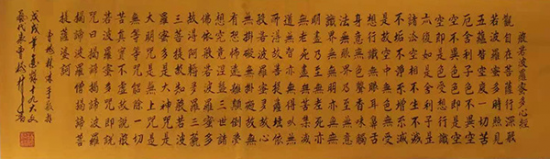 般若波羅蜜多心經
觀自在菩薩行深般
若波羅蜜多時照見
五蘊皆空度一切苦
厄舍利子色不異空
空不異色色即是空
空即是色受想行識
亦復如是舍利子是
諸法空相不生不滅
不垢不淨不增不減
是故空中無色無受
想行識無眼耳鼻舌
身意無色聲香味觸
法無眼界乃至無意
識界無無明亦無無
明盡乃至無老死亦
無老死盡無苦集滅
道無智亦無得以無
所得故菩提薩埵依
般若波羅蜜多故心
無掛礙無掛礙故無
有恐怖遠離顛倒夢
想究竟涅槃三世諸
佛依般若波羅蜜多
故得阿耨多羅三藐
三菩提故知般若波
羅蜜多是大神咒是
大明咒是無上咒是
無等等咒能除一切
苦真實不虛故說般
若波羅蜜多咒即說
咒曰揭諦揭諦波羅
揭諦波羅僧揭諦菩
提薩婆訶